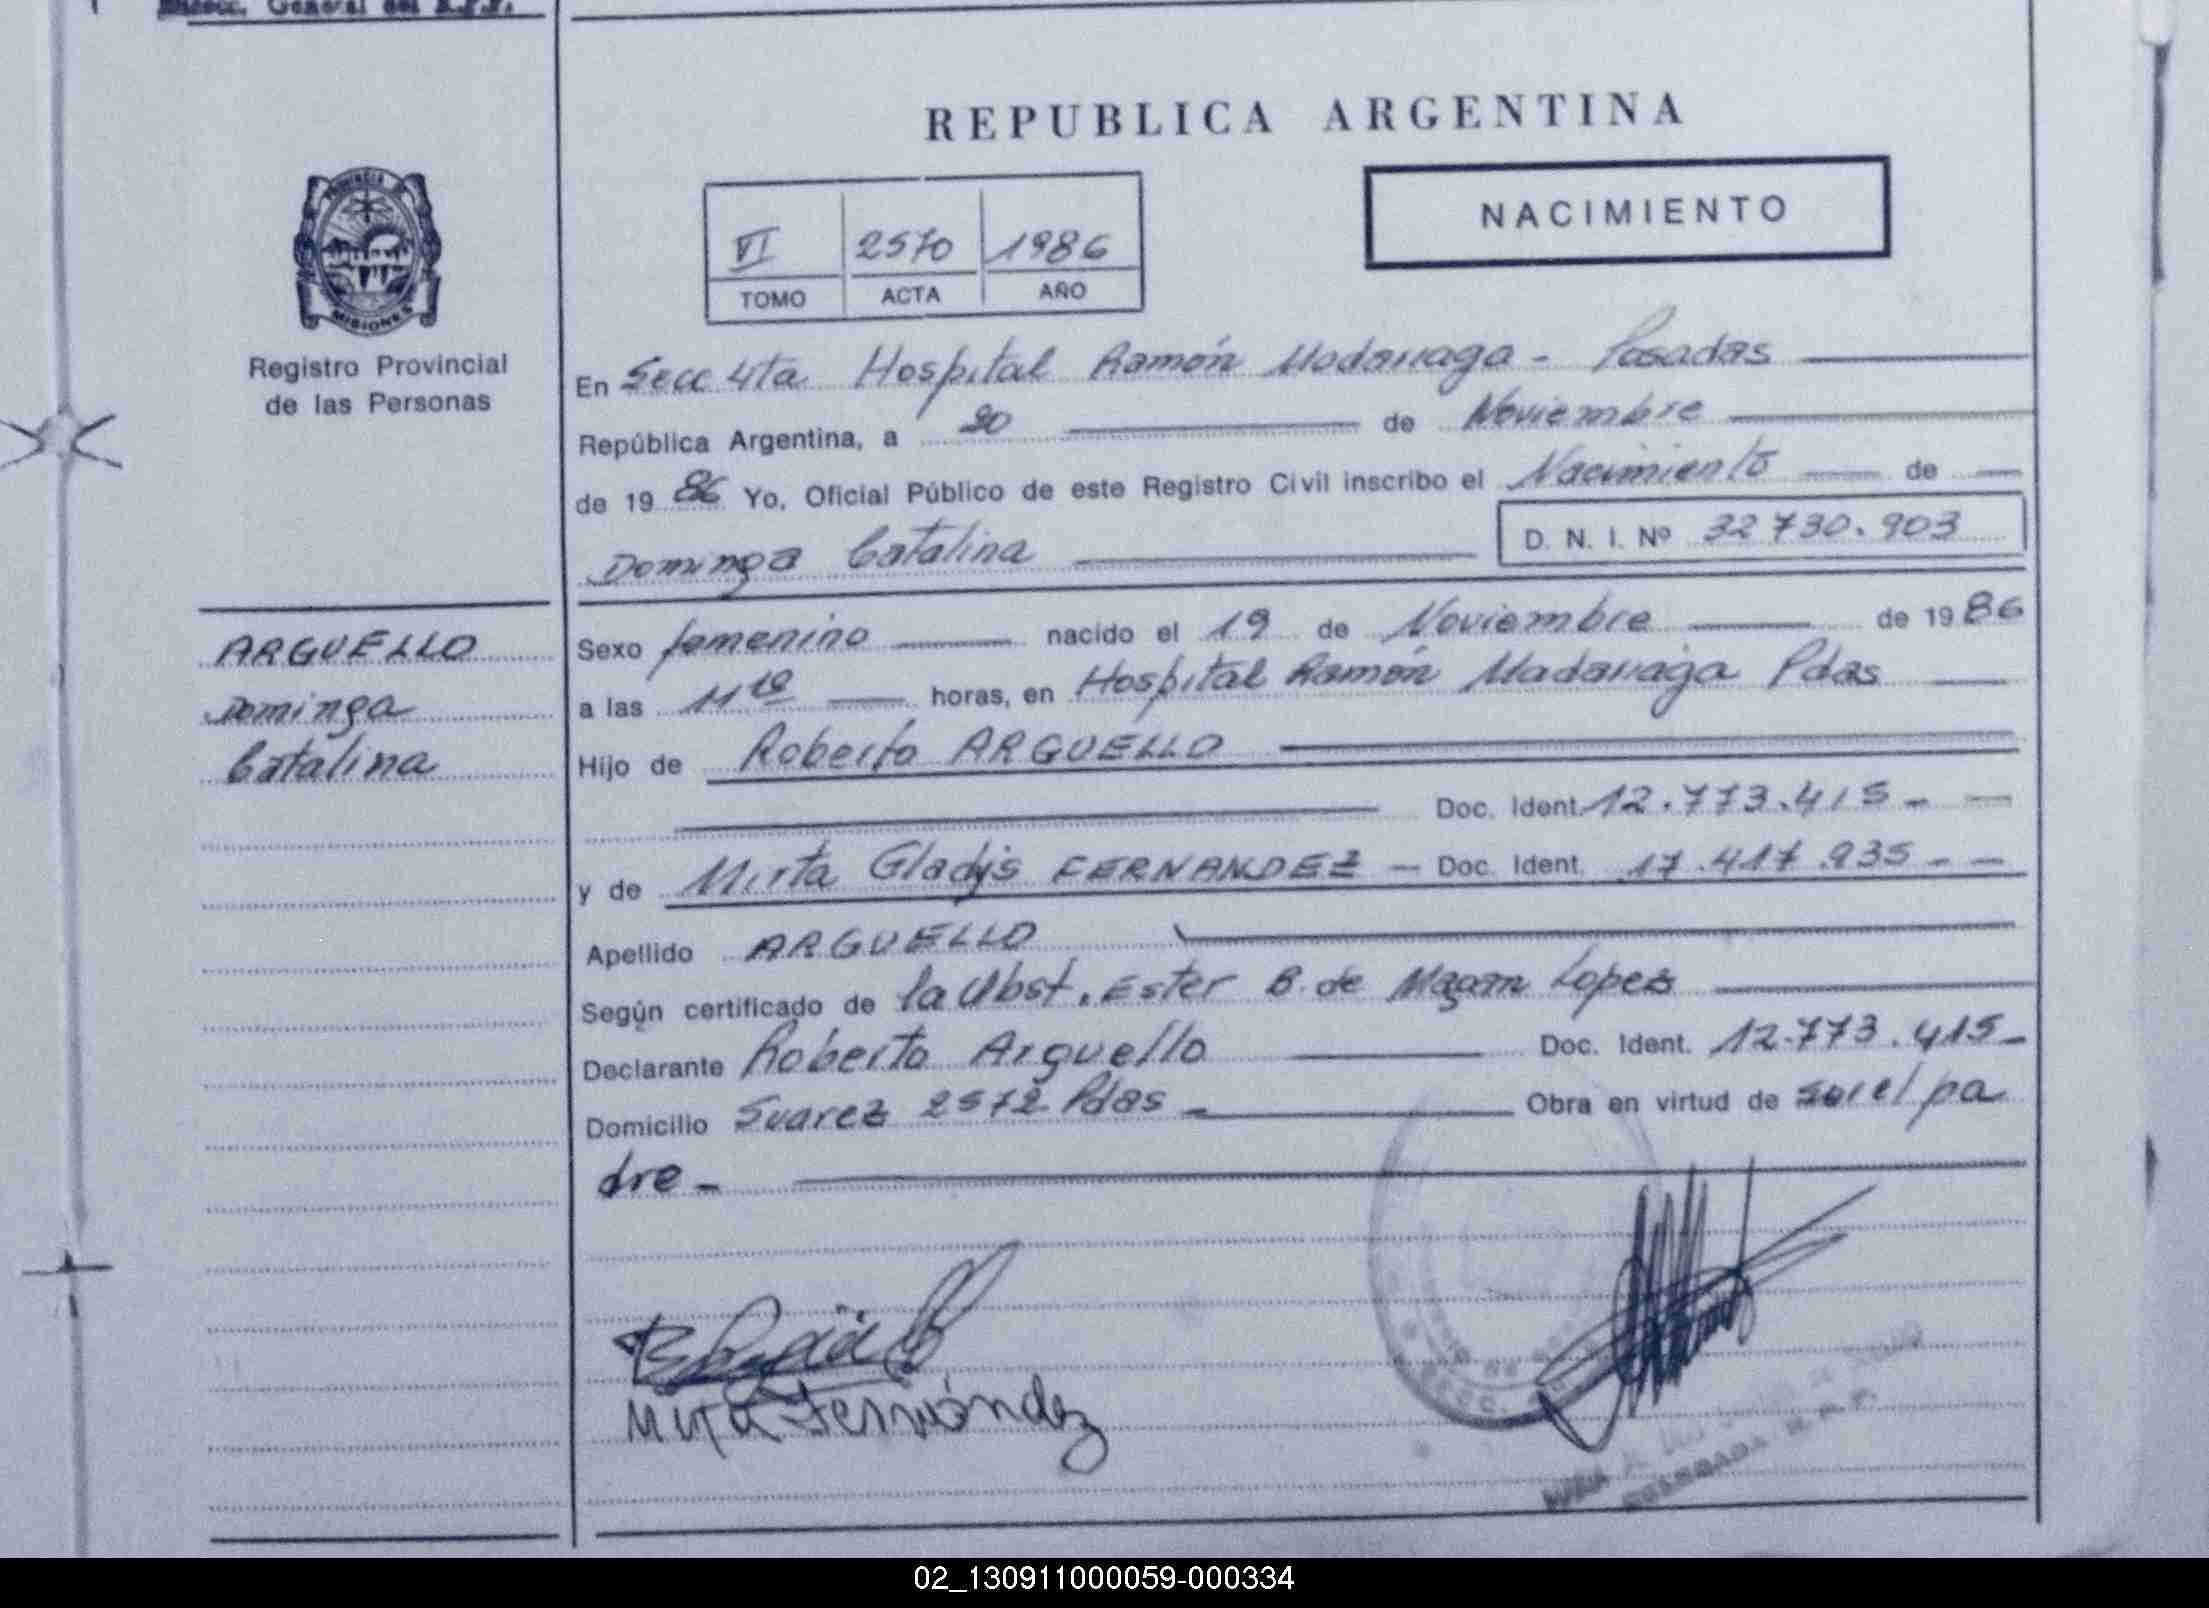 General del R.P.P.
REPUBLICA ARGENTINA
NACIMIENTO
VI 2570 1986
TOMO ACTA AÑO
PROVINCIA DE
MISIONES
Registro Provincial
de las Personas
En Secc 4ta Hospital Ramón Madariaga - Posadas
República Argentina, a 20 de Noviembre
de 1986 Yo, Oficial Público de este Registro Civil inscribo el Nacimiento de
Dominga Catalina D. N. I. Nº 32 730.903
ARGUELLO
Dominga
Catalina
Sexo femenino nacido el 19 de Noviembre de 1986
a las 11 10 horas, en Hospital Ramón Madariaga Pdas
Hijo de Roberto ARGUELLO
Doc. Ident. 12.773.415-
y de Mirta Gladys FERNANDEZ - Doc. Ident. 17.417.935--
Apellido ARGUELLO
Según certificado de la Obst. Ester B. de Lopez
Declarante Roberto Arguello Doc. Ident. 12.773.415-
Domicilio Suarez 2572 Pdas - Obra en virtud de ser el pa
dre -
Mirta Fernández
02_130911000059-000334